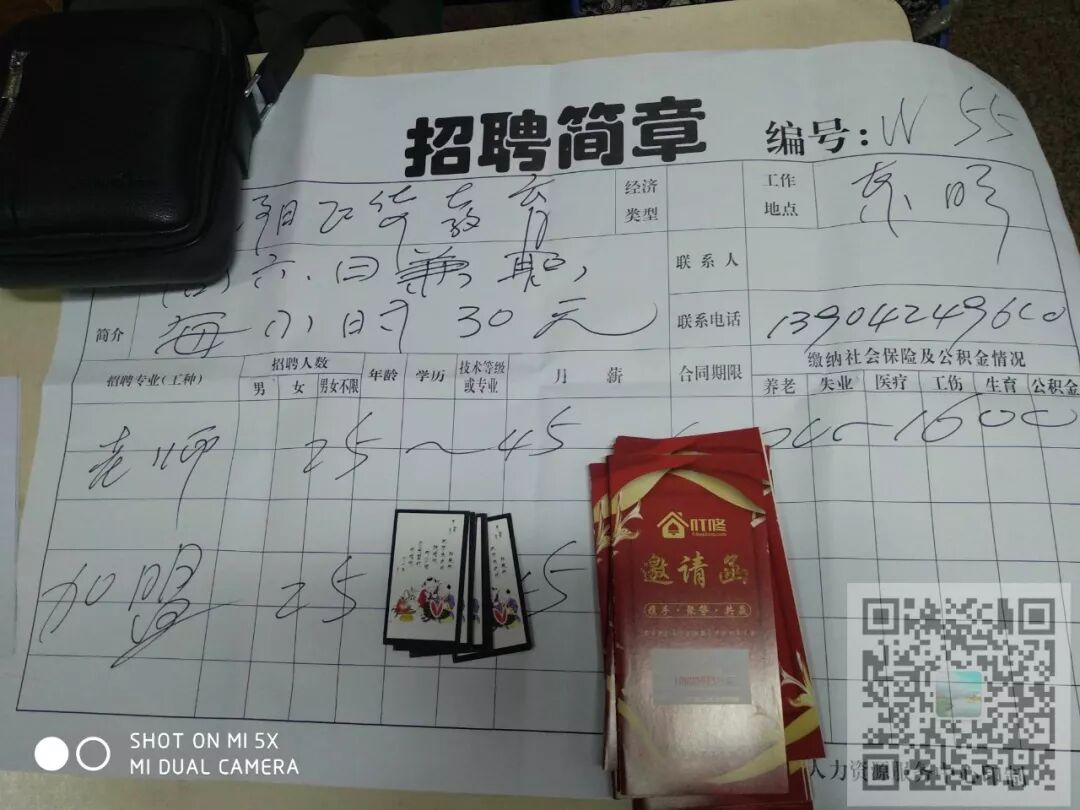 招聘简章
编号：W 55
经济类型
工作地点
六.日兼职,
联系人
简介
每小时30元
联系电话
13904249600
招聘专业(工种)
招聘人数
男
女
男女不限
年龄
学历
技术等级或专业
月 薪
合同期限
缴纳社会保险及公积金情况
养老
失业
医疗
工伤
生育
公积金
老师 25～45
1600
加盟 25
叮咚
邀请函
携手·聚势·共赢
人力资源服务中心印制
SHOT ON MI 5X
MI DUAL CAMERA